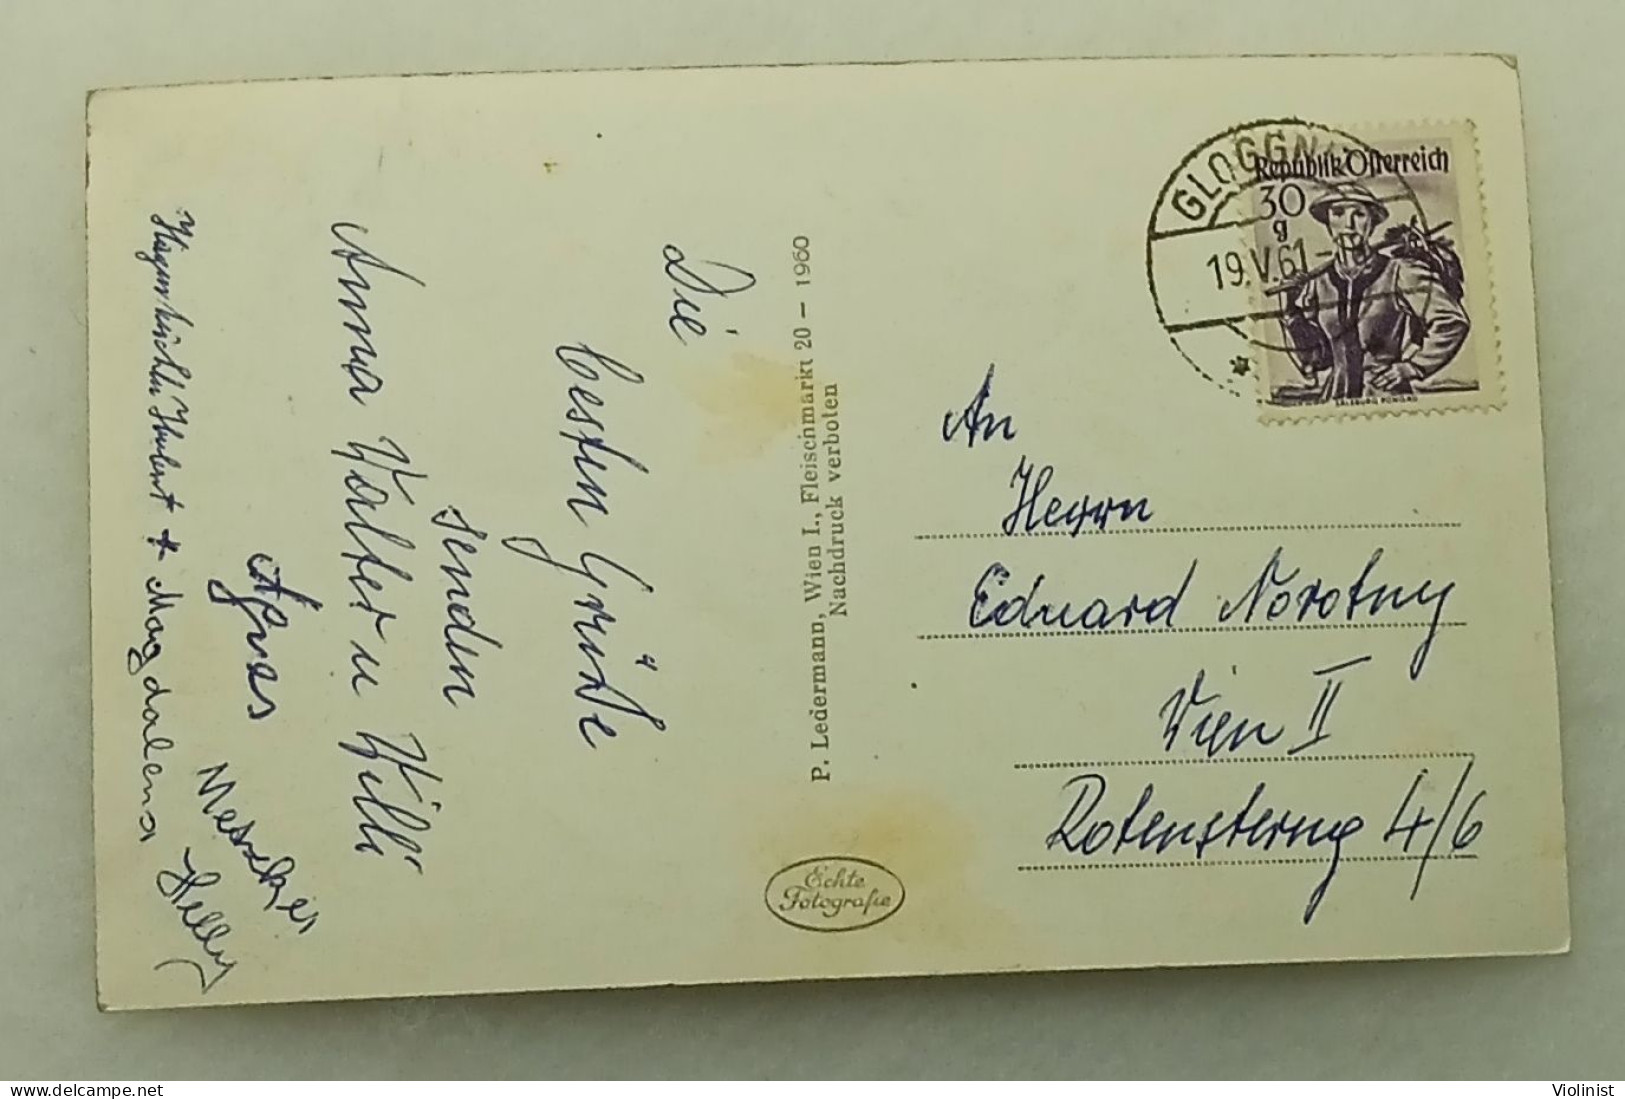 Die
besten Grüße
senden
Anna Walter u Willi
Agnes
Helly
Magdalena
P. Ledermann, Wien I., Fleischmarkt 20 — 1960
Nachdruck verboten
Echte
Fotografie
GLOGGN
19.V.61-18
Republik Österreich
30
g
SALZBURG PONGAU
An
Herrn
Eduard Novotny
Wien II
Rotensterng 4/6
www.delcampe.net
Violinist